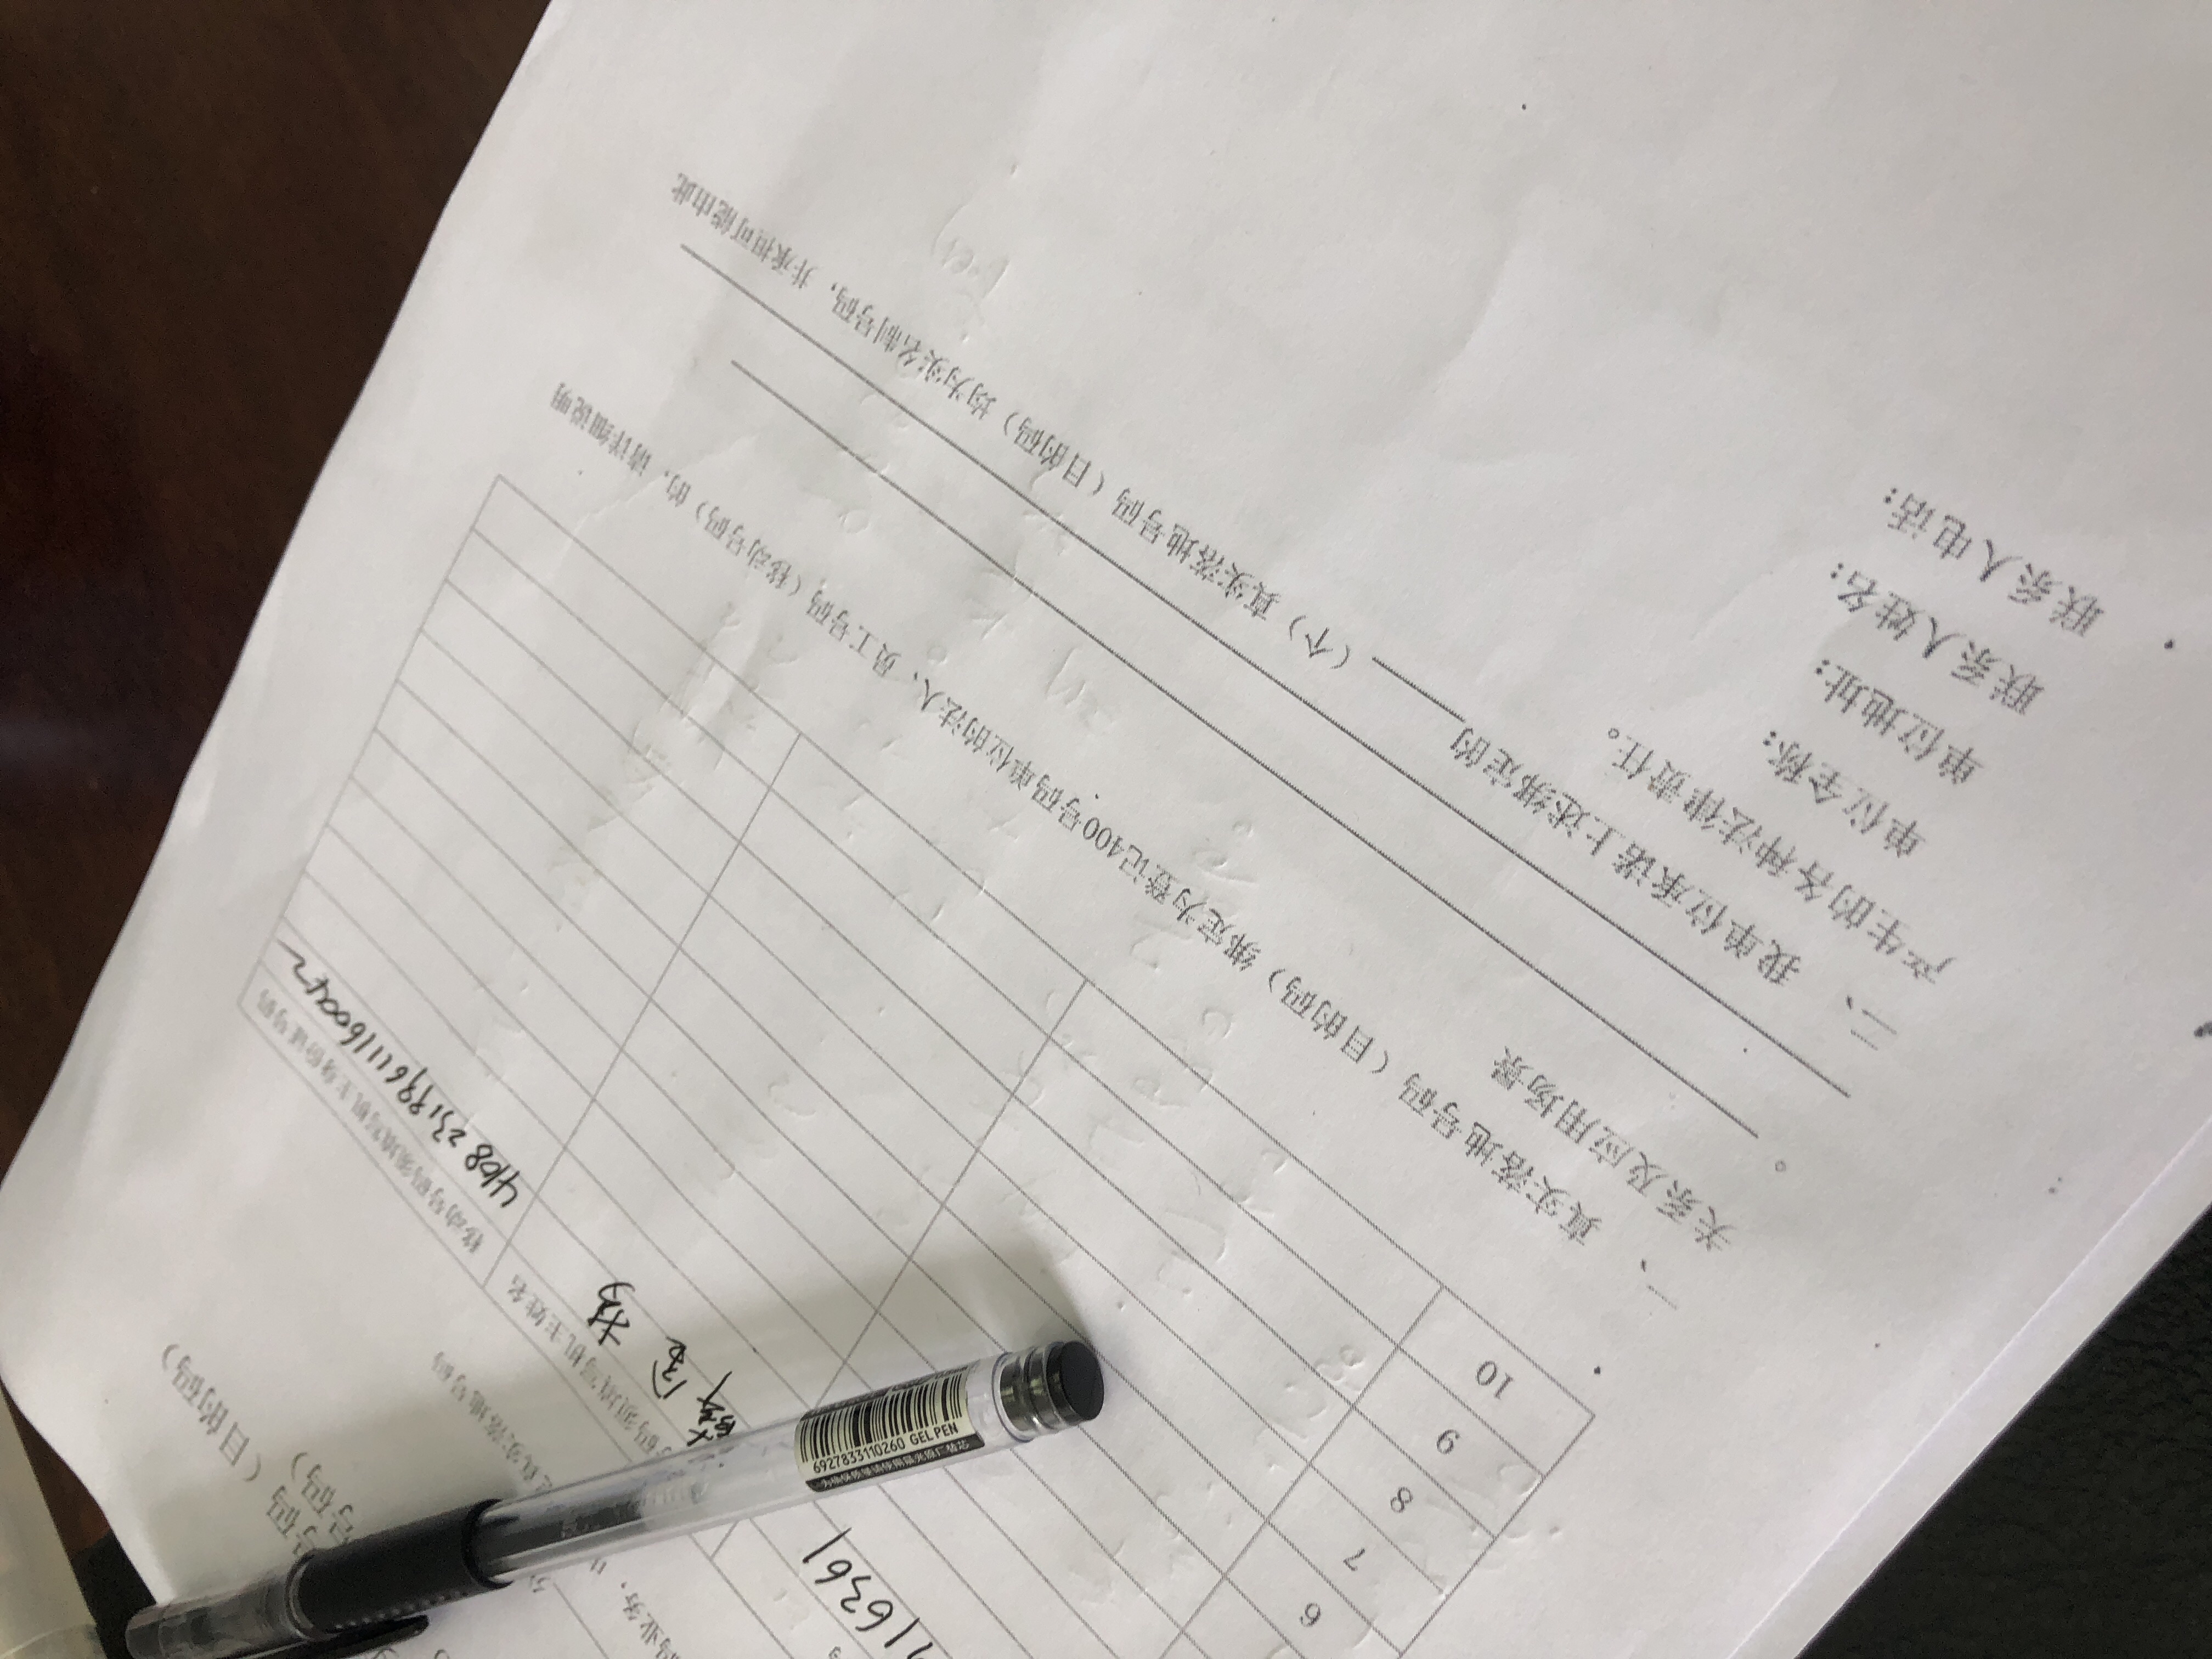 号码（目的码）
号码）
真实落地号码
码业务，
号码须填写机主姓名
移动号码须填写机主身份证号码
16361
薛金
410823199611160042
6
7
8
9
10
6927833110260 GEL PEN
一、 真实落地号码（目的码）绑定为登记400号码单位的法人、员工号码（移动号码）的，请详细说明
关系及应用场景
。
二、 我单位承诺上述绑定的（个）真实落地号码（目的码）均为实名制号码，并承担可能由此
产生的各种法律责任。
单位全称：
单位地址：
联系人姓名：
联系人电话：